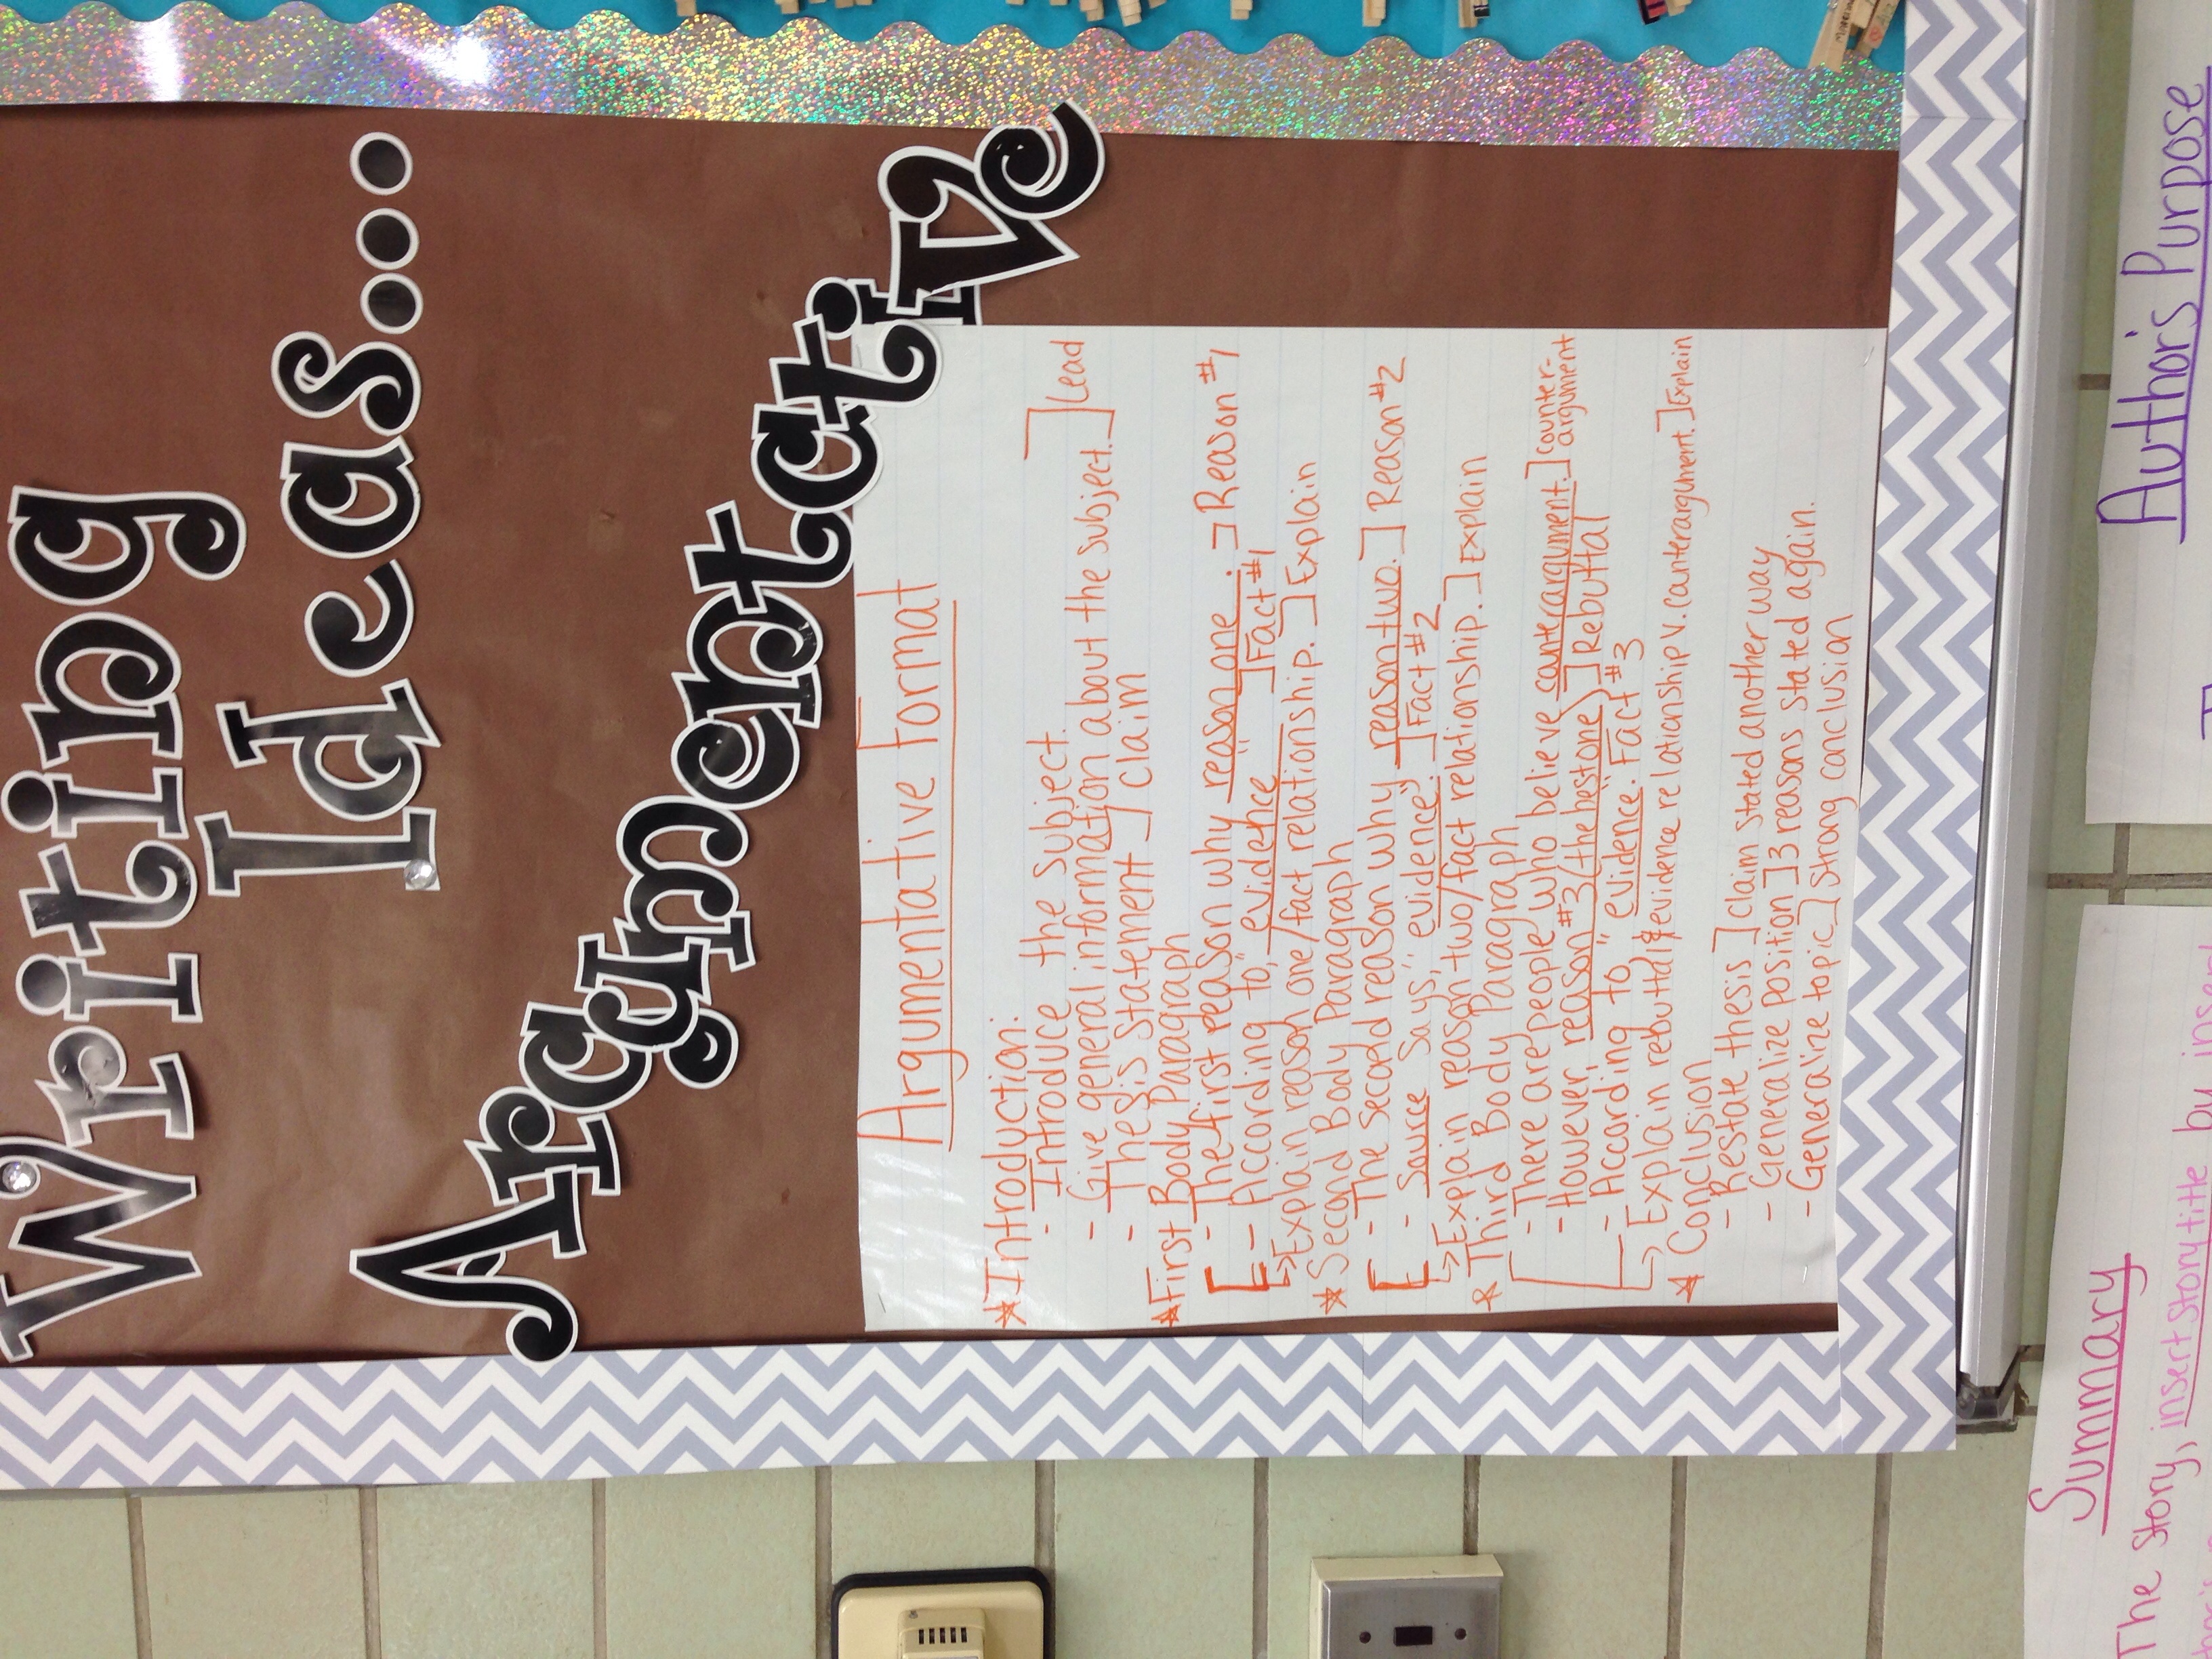 Writing
Ideas...
Argumentative
Argumentative Format
*Introduction:
- Introduce the subject. ] Lead
- Give general information about the subject. ]
- Thesis Statement ] claim
*First Body Paragraph
- The first reason why reason one. ] Reason #1
- According to, "evidence" ] Fact #1
→ Explain reason one/fact relationship. ] Explain
* Second Body Paragraph
- The second reason why reason two. ] Reason #2
- Source says, "evidence". ] Fact #2
→ Explain reason two/fact relationship. ] Explain
* Third Body Paragraph
- There are people who believe conterargument. ] counter-argument
- However, reason #3 (the best one) ] Rebuttal
- According to "evidence". Fact #3
→ Explain rebuttal & evidence relationship v. conterargument. ] Explain
* Conclusion
- Restate thesis ] claim stated another way
- Generalize position ] 3 reasons stated again.
- Generalize topic ] Strong conclusion
Author's Purpose
Summary
The story, insert story title by insert